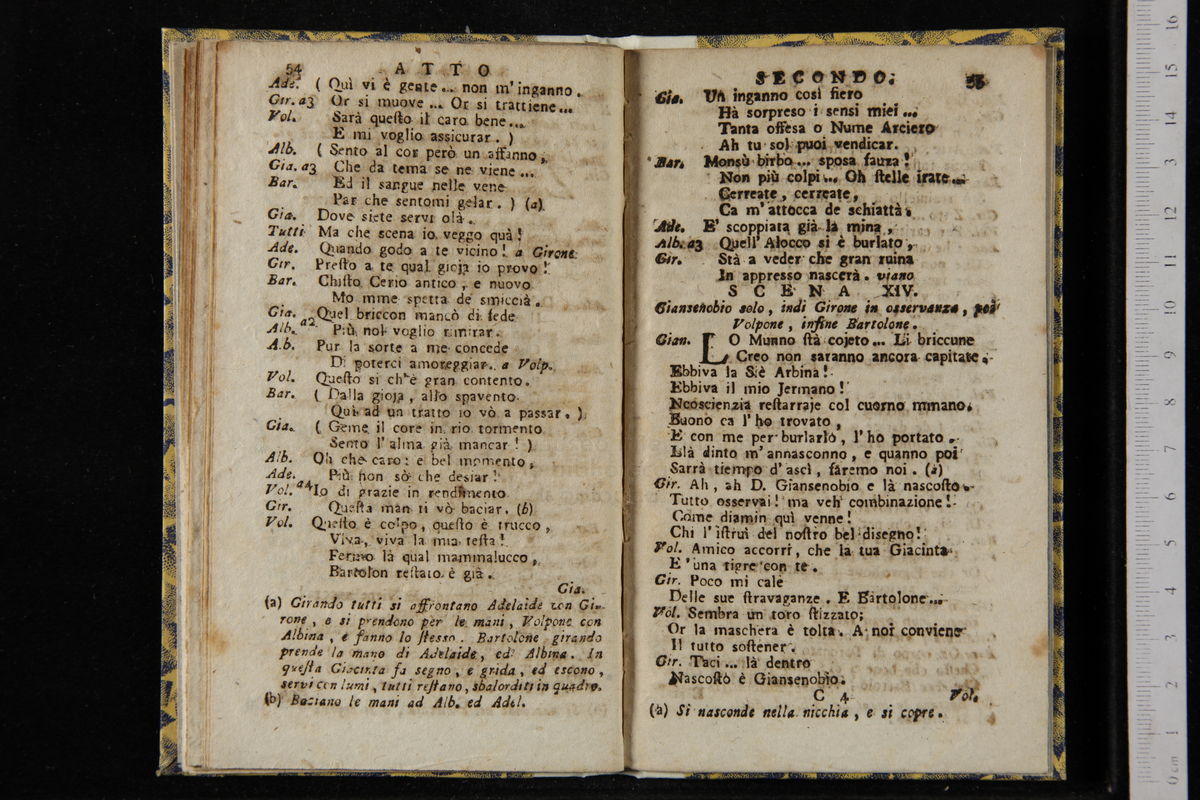 54 ATTO
Ade. ( Quì vi è gente... non m'inganno.
Gir. a3 Or si muove... Or si trattiene...
Vol. Sarà queſto il caro bene...
E mi voglio assicurar. )
Alb. ( Sento al cor però un affanno,
Gia. a3 Che da tema se ne viene...
Bar. Ed il sangue nelle vene
Par che sentomi gelar. ) (a)
Gia. Dove siete servi olà.
Tutti Ma che scena io veggo quà!
Ade. Quando godo a te vicino! a Girone
Gir. Preſto a te qual gioja io provo!
Bar. Chiſto Cerio antico, e nuovo
Mo mme spetta de smiccià.
Gia. a2 Quel briccon mancò di fede
Alb. Più nol voglio rimirar.
Alb. Pur la sorte a me concede
Di poterci amoreggiar. a Volp.
Vol. Queſto si ch'è gran contento.
Bar. ( Dalla gioja, allo spavento
Quì ad un tratto io vò a passar. )
Gia. ( Geme il core in rio tormento
Sento l'alma già mancar! )
Alb. Oh che caro; e bel momento,
Ade. Più non sò che desiar!
Vol. a4 Io di grazie in rendimento
Gir. Queſta man ti vò baciar. (b)
Vol. Queſto è colpo, queſto è trucco,
Viva, viva la mia teſta!
Fermo là qual mammalucco,
Bartolon reſtato è già.
Gia.
(a) Girando tutti si affrontano Adelaide con Gi-
rone, e si prendono per le mani, Volpone con
Albina, e fanno lo ſtesso. Bartolone girando
prende la mano di Adelaide, ed Albina. In
queſta Giacinta fa segno, e grida, ed escono,
servi con lumi, tutti reſtano, sbalorditi in quadro.
(b) Baciano le mani ad Alb. ed Adel.
SECONDO. 55
Gia. Un inganno così fiero
Hà sorpreso i sensi miei...
Tanta offesa o Nume Arciero
Ah tu sol puoi vendicar.
Bar. Monsù birbo... sposa fauza!
Non più colpi... Oh ſtelle irate...
Cerreate, cerreate,
Ca m'attocca de schiattà.
Ade. E' scoppiata già la mina,
Alb. a3 Quell' Alocco si è burlato,
Gir. Stà a veder che gran ruina
In appresso nascerà. viano
SCENA XIV.
Giansenobio solo, indi Girone in osservanza, poi
Volpone, infine Bartolone.
Gian. LO Munno ſtà cojeto... Li briccune
Creo non saranno ancora capitate.
Ebbiva la Siè Arbina!
Ebbiva il mio Jermano!
Ncoscienzia reſtarraje col cuorno mmano.
Buono ca l'ho trovato,
E con me per burlarlo, l'ho portato.
Llà dinto m'annasconno, e quanno poi
Sarrà tiempo d'ascì, faremo noi. (a)
Gir. Ah, ah D. Giansenobio e là nascoſto.
Tutto osservai! ma veh combinazione!
Come diamin quì venne!
Chi l'iſtruì del noſtro bel disegno!
Vol. Amico accorri, che la tua Giacinta
E' una tigre con te.
Gir. Poco mi cale
Delle sue ſtravaganze. E Bartolone...
Vol. Sembra un toro ſtizzato;
Or la maschera è tolta. A noi conviene
Il tutto softener.
Gir. Taci... là dentro
Nascoſto è Giansenobio.
C 4 Vol.
(a) Si nasconde nella nicchia, e si copre.
16
15
14
3
12
11
10
9
8
7
6
5
4
3
2
1
0 cm